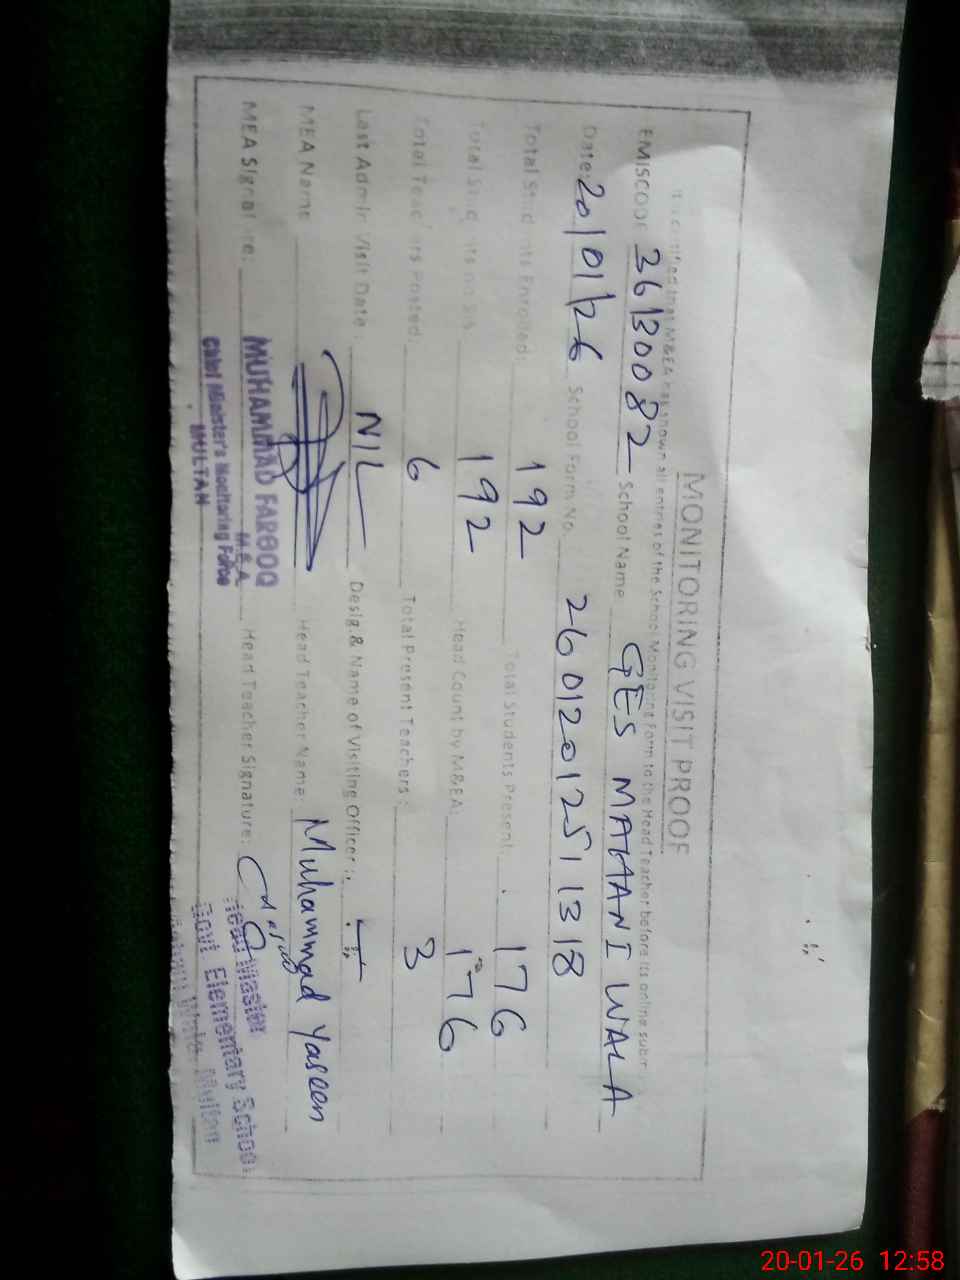 MONITORING VISIT PROOF
It is certified that M&EA has shown all entries of the School Monitoring Form to the Head Teacher before its online
EMISCODE 36130082 School Name GES MALAANI WALA
Date: 20/01/26 School Form No. 2601201251318
Total Students Enrolled: 192 Total Students Present: 176
Total Students 192 Head Count by M&EA: 176
Total Teachers Posted: 6 Total Present Teachers: 3
Last Admin Visit Date: NIL Desig.& Name of Visiting Officer:
MEA Name Head Teacher Name: Muhammad Yaseen
MEA Signature: MUHAMMAD FAROOQ Head Teacher Signature:
M.E.A
Chief Minister's Monitoring Force
MULTAN
Head Master
Govt. Elementary School
Multan
20-01-26 12:58